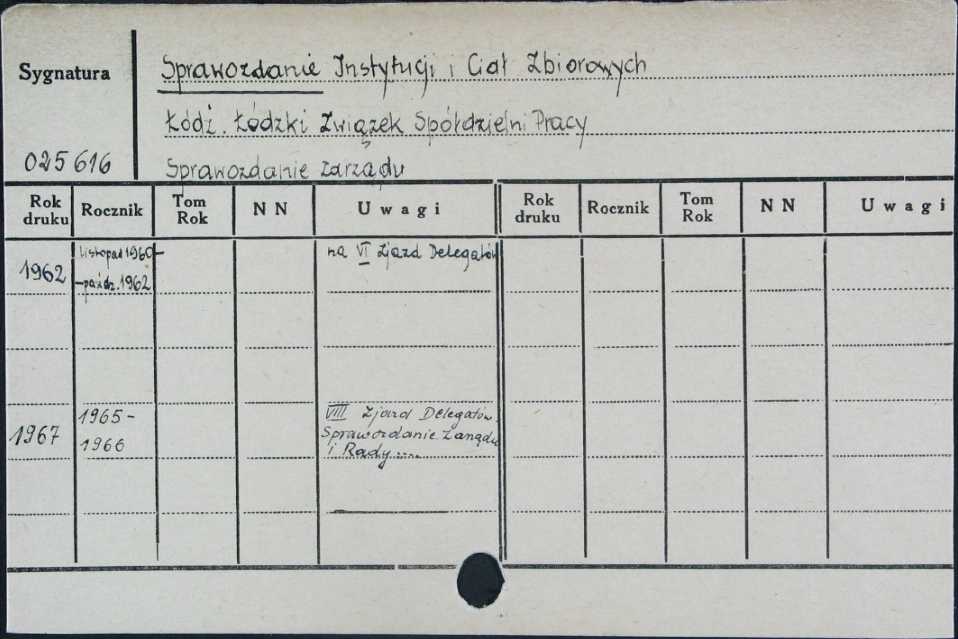 Sygnatura
Sprawozdanie Instytucji i Ciał Zbiorowych
Łódź. Łódzki Związek Spółdzielni Pracy
025616
Sprawozdanie zarządu
Rok druku Rocznik Tom Rok N N Uwagi Rok druku Rocznik Tom Rok N N Uwagi
1962 listopad 1960- -paźdz. 1962 na VI Zjazd Delegatów
1967 1965- 1966 VIII Zjazd Delegatów.
Sprawozdanie Zarządu
i Rady.....